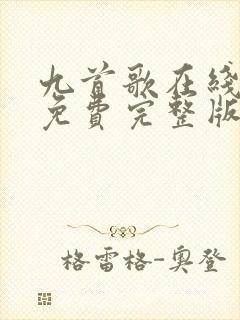 九首歌在线
免費完整版
格雷格-奥登